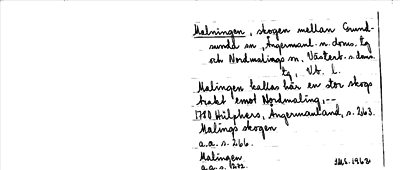 Malningen, skogen mellan Grund-
sunda sn, Ångermanl. n. doms. tg
och Nordmalings sn, Västerb. s. doms.
tg, Vb. l.
Malingen kallas här en stor skogs
trakt emot Nordmaling, --
1780 Hülphers, Ångermanland, s. 263.
Malings skogen
a.a. s. 266.
Malingen
a.a. s. 272.
IMS. 1963